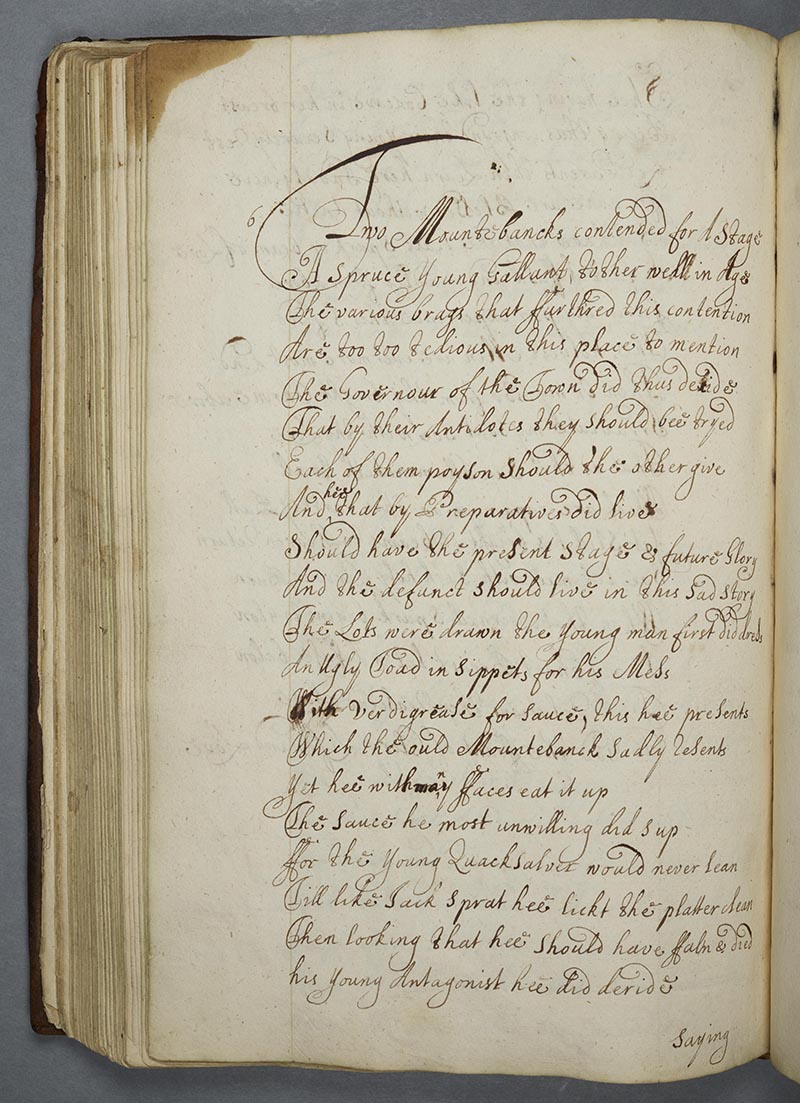 6
Two Mountebancks contended for A Stage
A Spruce Young Gallant, tother well in Age
The various brags that ffurthred this contention
Are too too tedious in this place to mention
The Governour of the Town did thus decide
That by their Antidotes they should bee tryed
Each of them poyson should the other give
And hee that by Preparatives did live
Should have the present Stage & future Glory
And the defunct should live in this Sad story
The Lots were drawn the Young man first did dress
An Ugly Toad in Sippets for his Mess
With Verdigrease for Sauce, this hee presents
Which the ould Mountebanck Sadly resents
Yet hee with many ffaces eat it up
The Sauce he most unwilling did sup
ffor the Young Quacksalver would never lean
Till like Jack Sprat hee lickt the platter clean
Then looking that hee should have ffaln & died
his Young Antagonist hee did deride
Saying